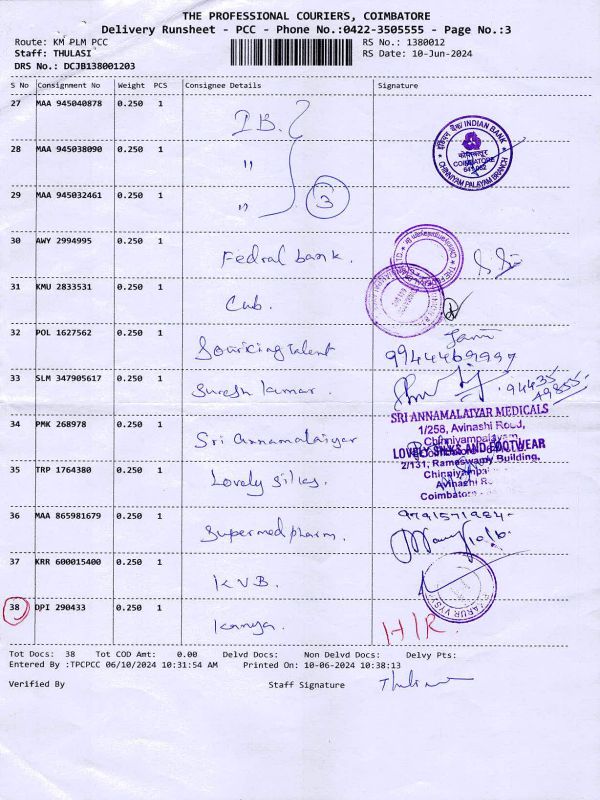 THE PROFESSIONAL COURIERS, COIMBATORE
Delivery Runsheet - PCC - Phone No.:0422-3505555 - Page No.:3
Route: KM PLM PCC
RS No.: 1380012
Staff: THULASI
RS Date: 10-Jun-2024
DRS No.: DCJB138001203
S No Consignment No Weight PCS Consignee Details Signature
27 MAA 945040878 0.250 1 I.B.
28 MAA 945038090 0.250 1 "
INDIAN BANK
COIMBATORE
CHINNIYAM PALAYAM BRANCH
29 MAA 945032461 0.250 1 "
3
30 AWY 2994995 0.250 1 Fedral bank.
31 KMU 2833531 0.250 1 Cub.
32 POL 1627562 0.250 1 Sourcing talent
33 SLM 347905617 0.250 1 Suresh kumar.
94435
49855
34 PMK 268978 0.250 1 Sri Annamalaiyar
SRI ANNAMALAIYAR MEDICALS
1/258, Avinashi Road,
Chinniyampalayam
35 TRP 1764380 0.250 1 Lovely silks.
LOVELY SILKS AND FOOTWEAR
2/131, Rameswamy Building,
Chinniyampa
Avinashi R
Coimbator
36 MAA 865981679 0.250 1 Supermed pharm.
37 KRR 600015400 0.250 1 KVB.
38 DPI 290433 0.250 1 Kanya.
H/R.
Tot Docs: 38 Tot COD Amt: 0.00 Delvd Docs: Non Delvd Docs: Delvy Pts:
Entered By :TPCPCC 06/10/2024 10:31:54 AM Printed On: 10-06-2024 10:38:13
Verified By Staff Signature